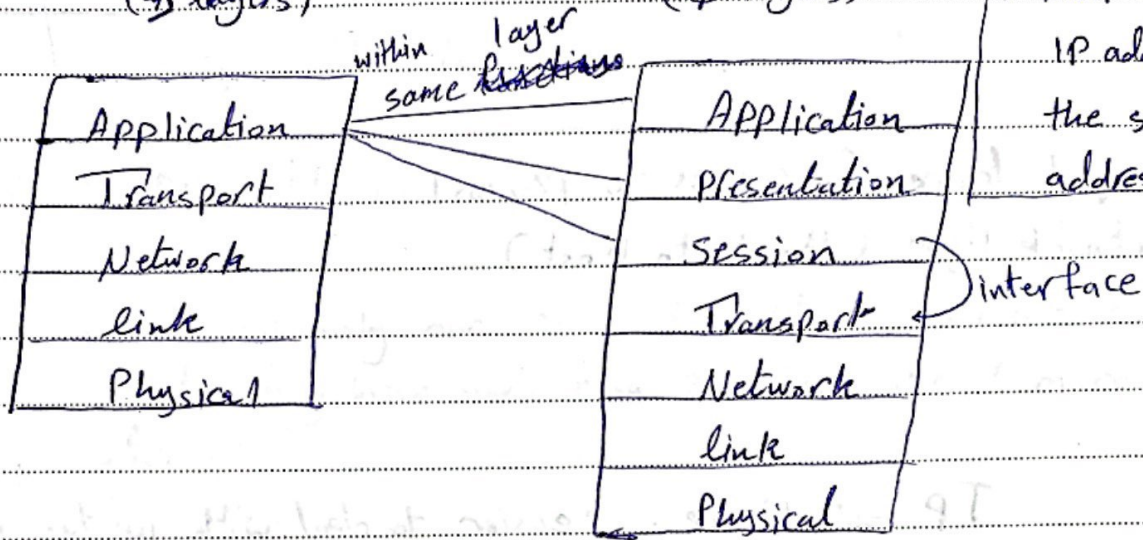 layers)
within
same layer
Application
Transport
Network
link
Physical
Application
Presentation
Session
Transport
Network
link
Physical
interface
IP ad
the s
addres